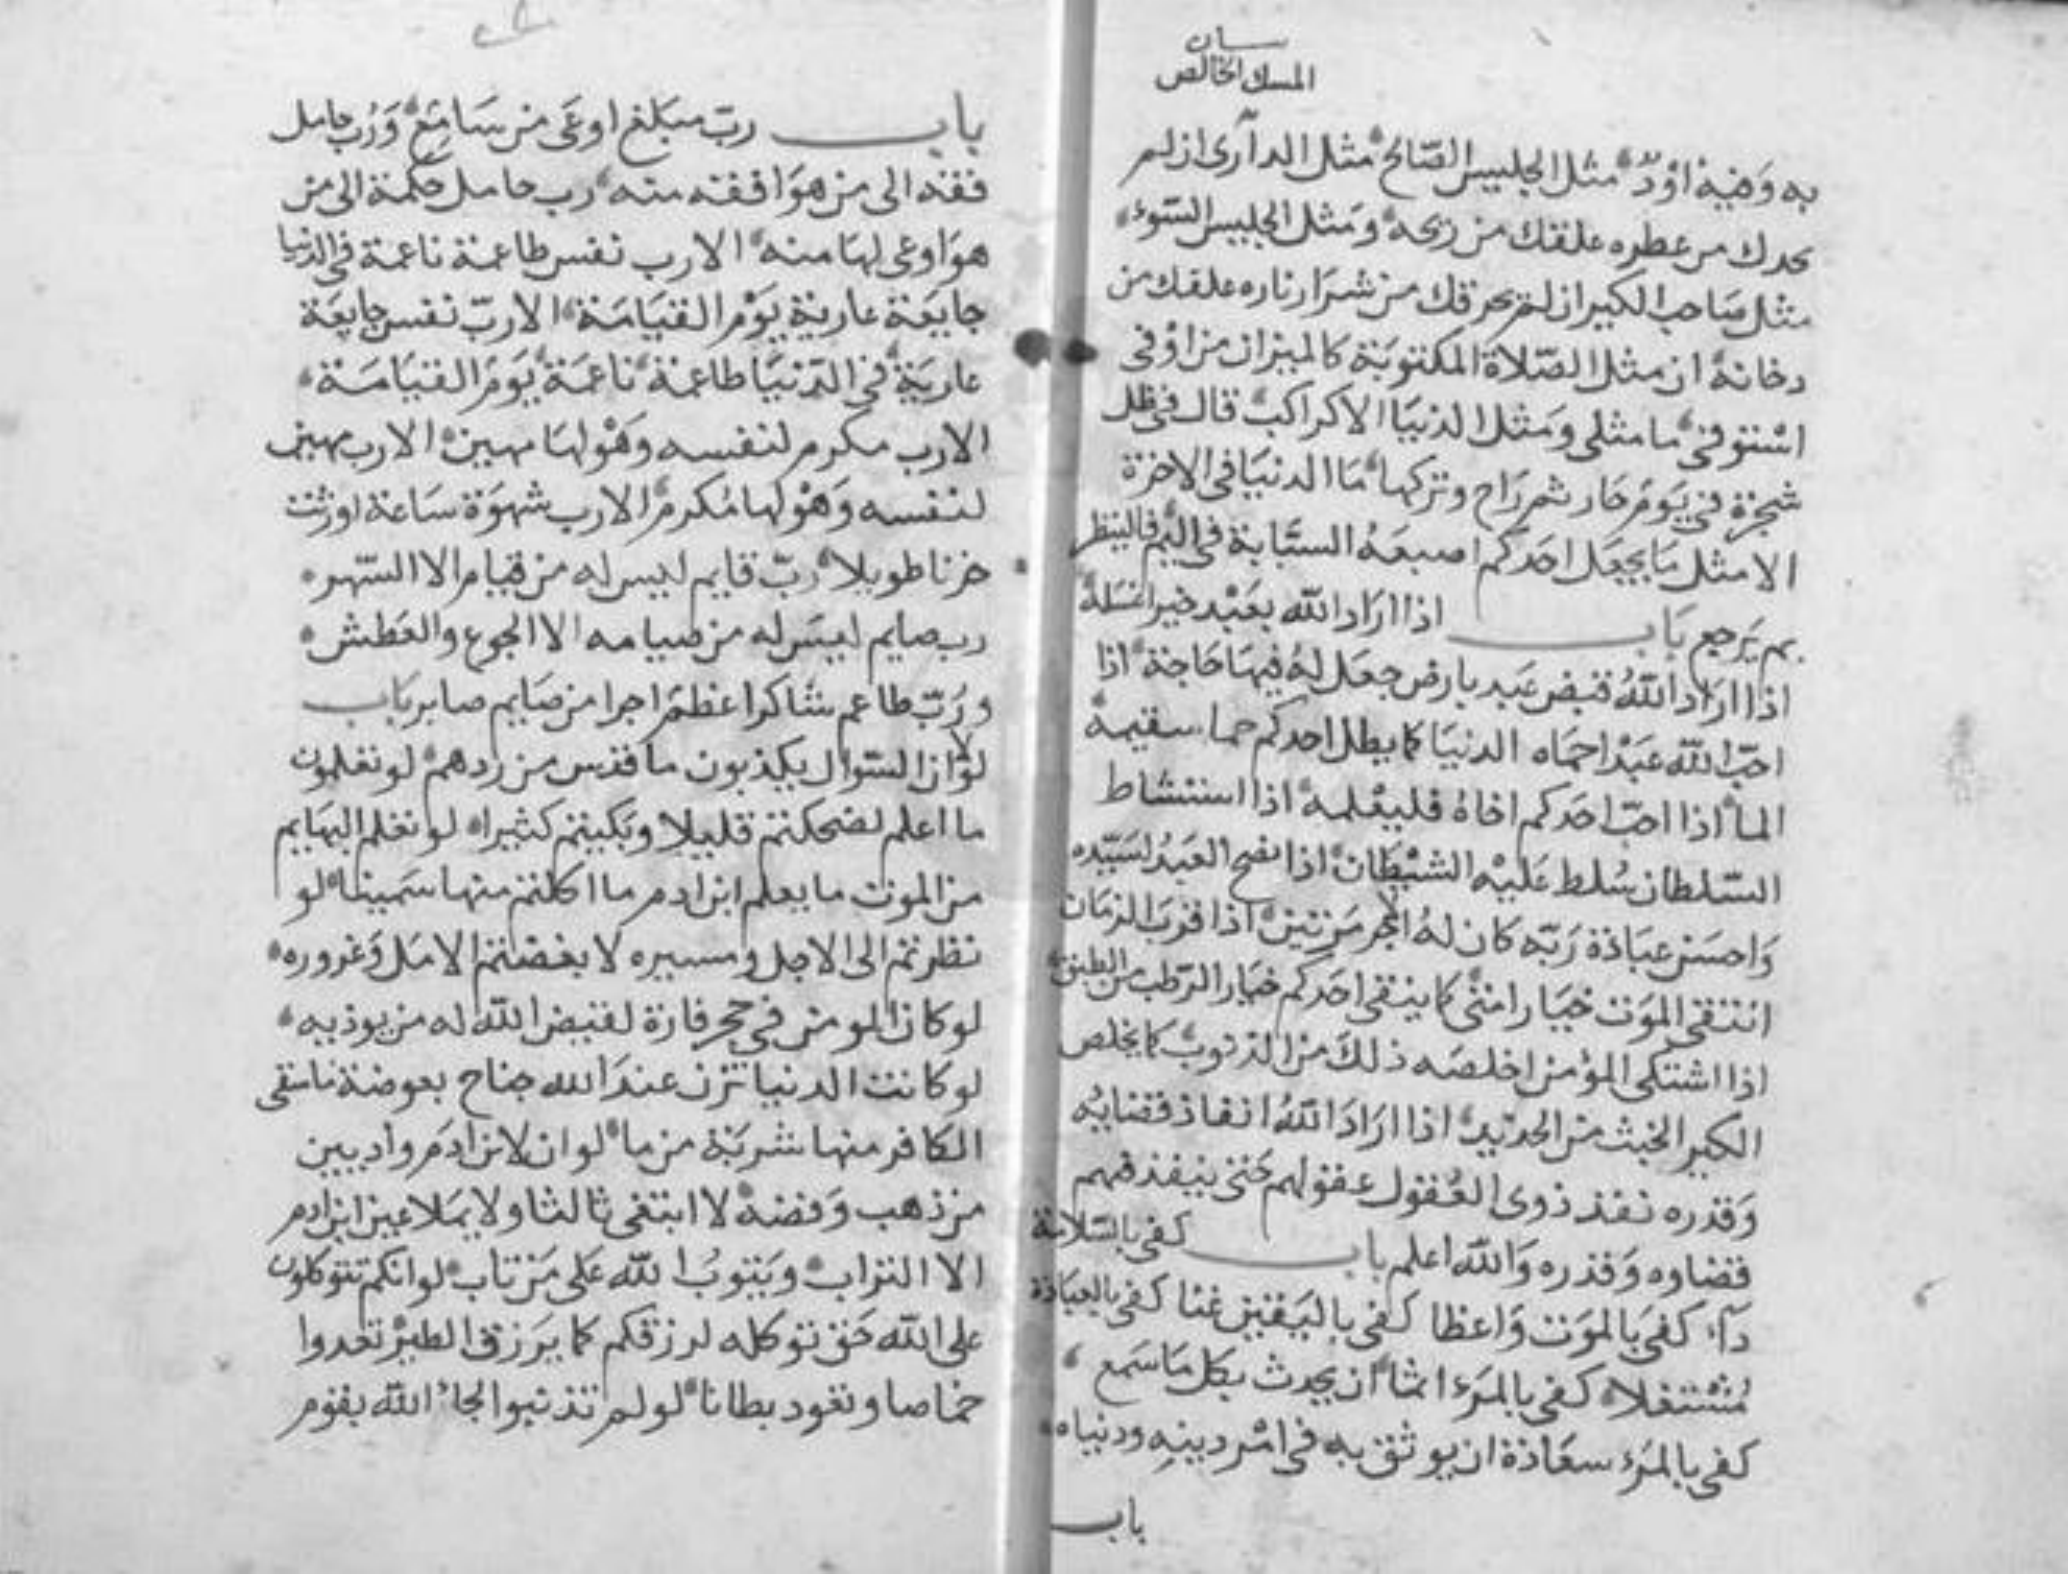 ـسان
المسك الخالص
به وهيه اود مثل الجليس الصالح مثل الداري ان لم
يحدك من عطره علقك من ريحه ومثل الجليس السوء
مثل صاحب الكير ان لم يحرقك من شرار ناره علقك من
دخانه ان مثل الصلاة المكتوبة كالميزان من اوفى
استوفى ما مثلي ومثل الدنيا الا كراكب قال في ظل
شجرة في يوم حار ثم راح وتركها ما الدنيا في الاخرة
الا مثل ما يجعل احدكم اصبعه السبابة في اليم فالينظر
بم يرجع باب اذا اراد الله بعبد خيرا غسله
اذا اراد الله قبض عبد بارض جعل له فيها حاجة اذا
احب الله عبدا حماه الدنيا كما يظل احدكم حما سقيمه
الما اذا احب احدكم اخاه فليعلمه اذا استشاط
السلطان سلط عليه الشيطان اذا نصح العبد لسيده
واحسن عبادة ربه كان له الاجر مرتين اذا قرب الزمان
انتقى الموت خيار امتي كما ينتقي احدكم خيار الرطب من الطبق
اذا اشتكى المؤمن اخلصه ذلك من الذنوب كما يخلص
الكير الخبث من الحديد اذا اراد الله انفاذ قضايه
وقدره نفذ ذوي العقول عقولهم حتى ينفذ فيهم
قضاوه وقدره والله اعلم باب كفى بالسلامة
داء كفى بالموت واعظا كفى باليقين غنا كفى بالعبادة
مشتغلا كفى بالمرء اثما ان يحدث بكل ما سمع
كفى بالمرء سعادة ان يوثق به في امر دينه ودنياه
باب
باب رب مبلغ اوعى من سامع ورب حامل
فقه الى من هو افقه منه رب حامل حكمة الى من
هو اوعى لها منه الا رب نفس طاعمة ناعمة في الدنيا
جايعة عارية يوم القيامة الا رب نفس جايعة
عارية في الدنيا طاعمة ناعمة يوم القيامة
الا رب مكرم لنفسه وهو لها مهين الا رب مهين
لنفسه وهو لها مكرم الا رب شهوة ساعة اورثت
حزنا طويلا رب قايم ليس له من قيام الا السهر
رب صايم ليس له من صيامه الا الجوع والعطش
ورب طاعم شاكر اعظم اجرا من صايم صابر باب
لولا ان السوال يكذبون ما قدس من ردهم لو تعلمون
ما اعلم لضحكتم قليلا وبكيتم كثيرا لو تعلم البهايم
من الموت ما يعلم ابن ادم ما اكلتم منها سمينا لو
نظرتم الى الاجل ومسيره لابغضتم الامل وغروره
لو كان المومن في جحر فارة لقيض الله له من يوذيه
لو كانت الدنيا تزن عند الله جناح بعوضة ما سقى
الكافر منها شربة من ما لو ان لابن ادم واديين
من ذهب وفضة لا ابتغى ثالثا ولا يملا عين ابن ادم
الا التراب ويتوب الله على من تاب لو انكم تتوكلون
على الله حق توكله لرزقكم كما يرزق الطير تغدوا
خماصا وتعود بطانا لو لم تذنبوا لجاء الله بقوم